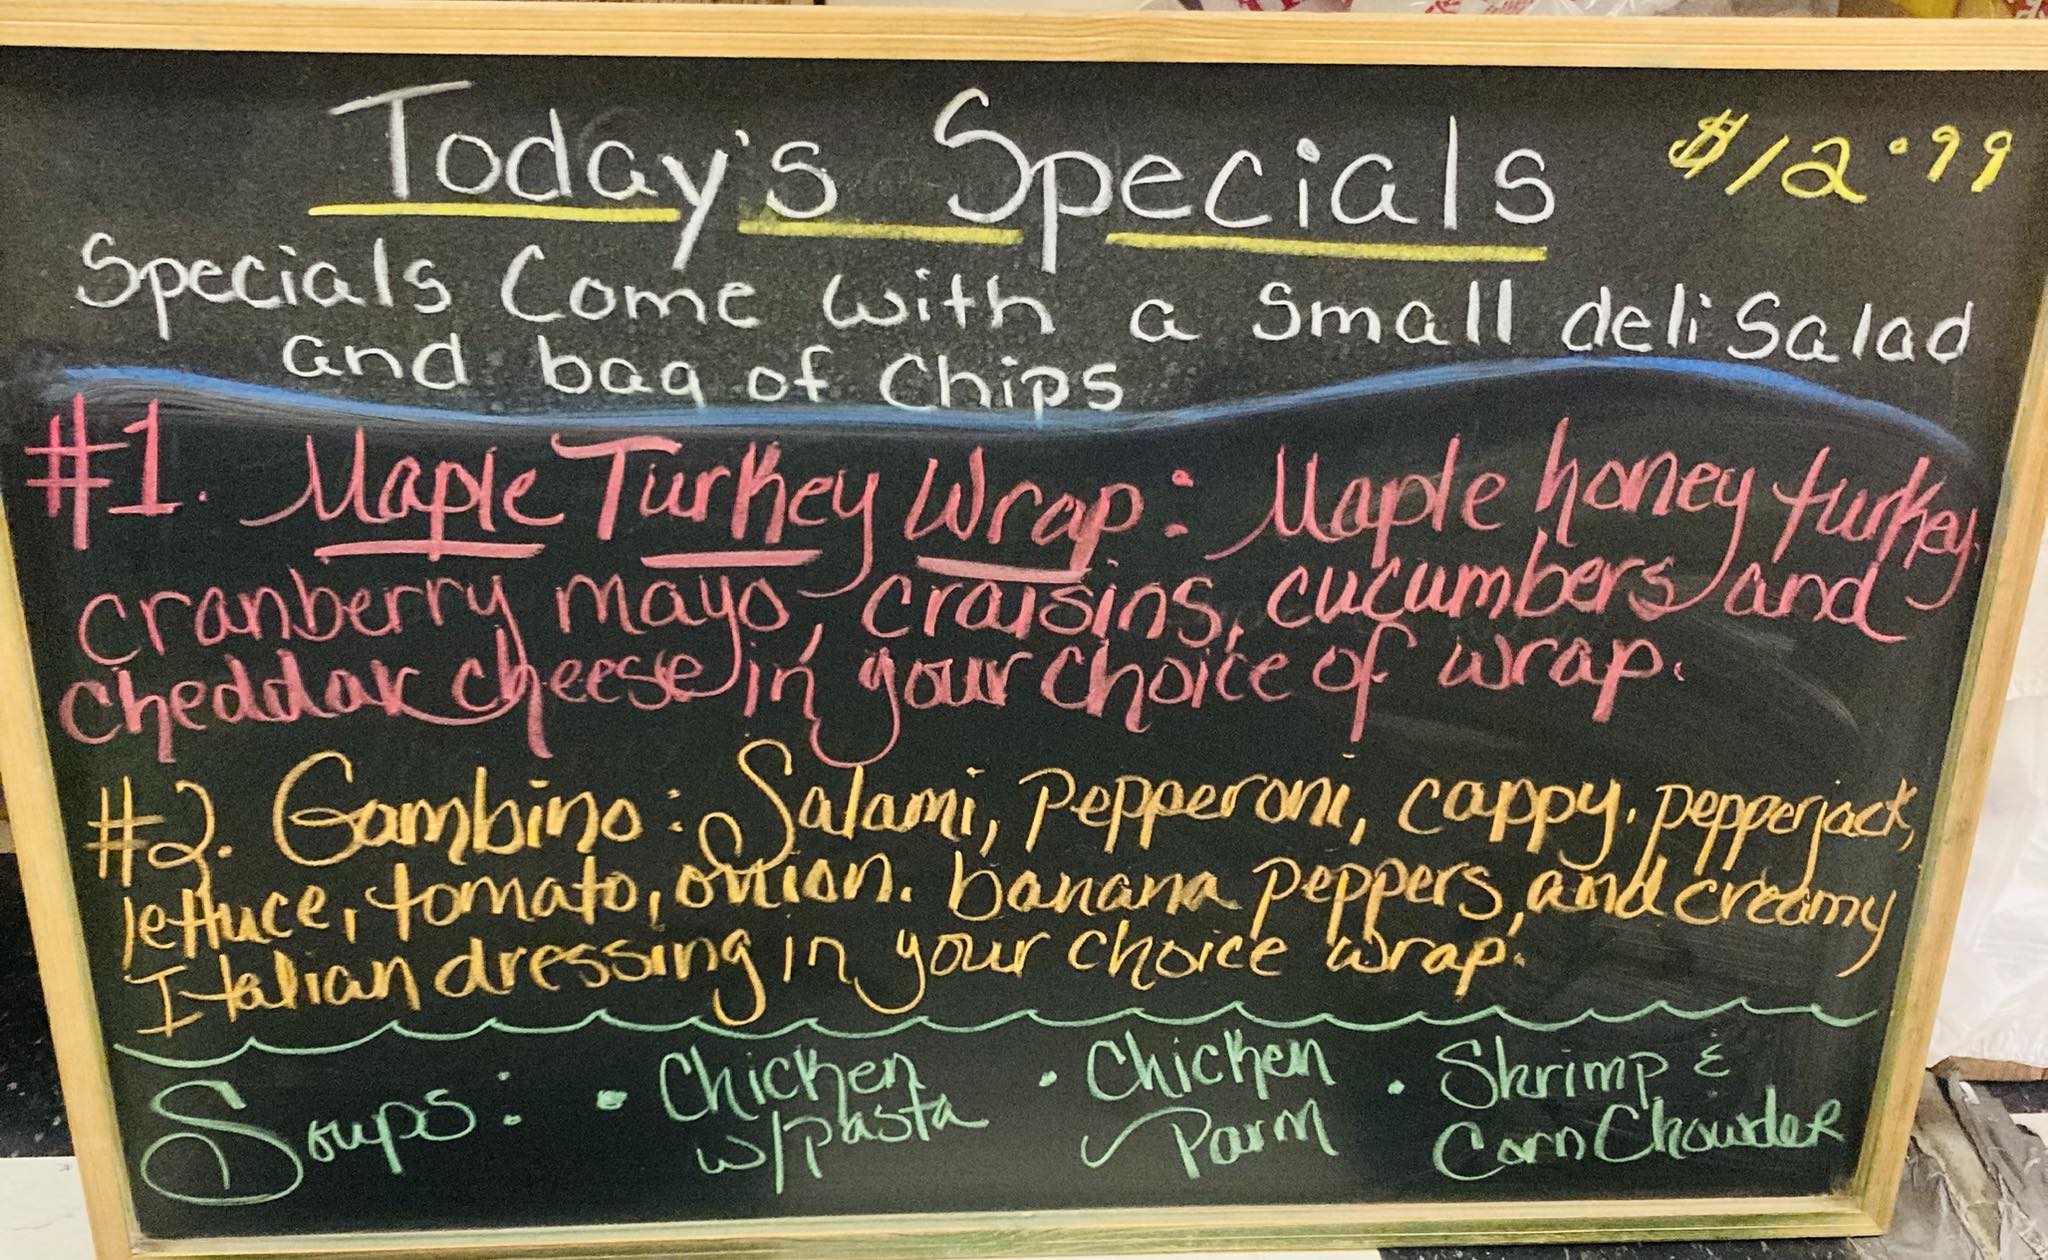 Today's Specials $12.99
Specials Come with a small deli Salad
and bag of Chips
#1. Maple Turkey Wrap: Maple honey turkey,
cranberry mayo, craisins, cucumbers and
cheddar cheese in your choice of wrap.
#2. Gambino: Salami, pepperoni, cappy, pepperjack,
lettuce, tomato, onion. banana peppers, and creamy
Italian dressing in your choice wrap.
Soups: • Chicken w/pasta • Chicken Parm • Shrimp & Corn Chowder